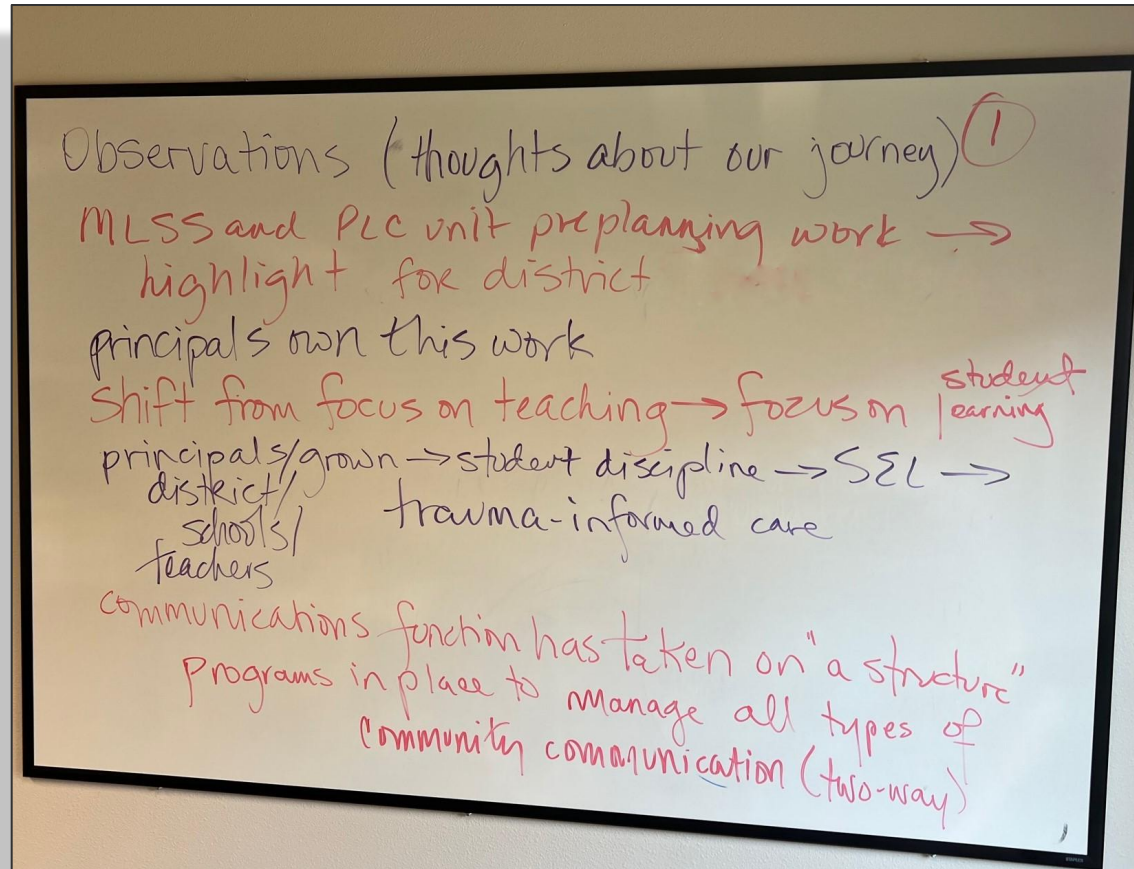 Observations (thoughts about our journey) 1
MLSS and PLC unit preplanning work →
highlight for district
principals own this work
Shift from focus on teaching → focus on student learning
principals/grown → student discipline → SEL →
district/ trauma-informed care
schools/
teachers
communications function has taken on "a structure"
Programs in place to manage all types of
Community communication (two-way)